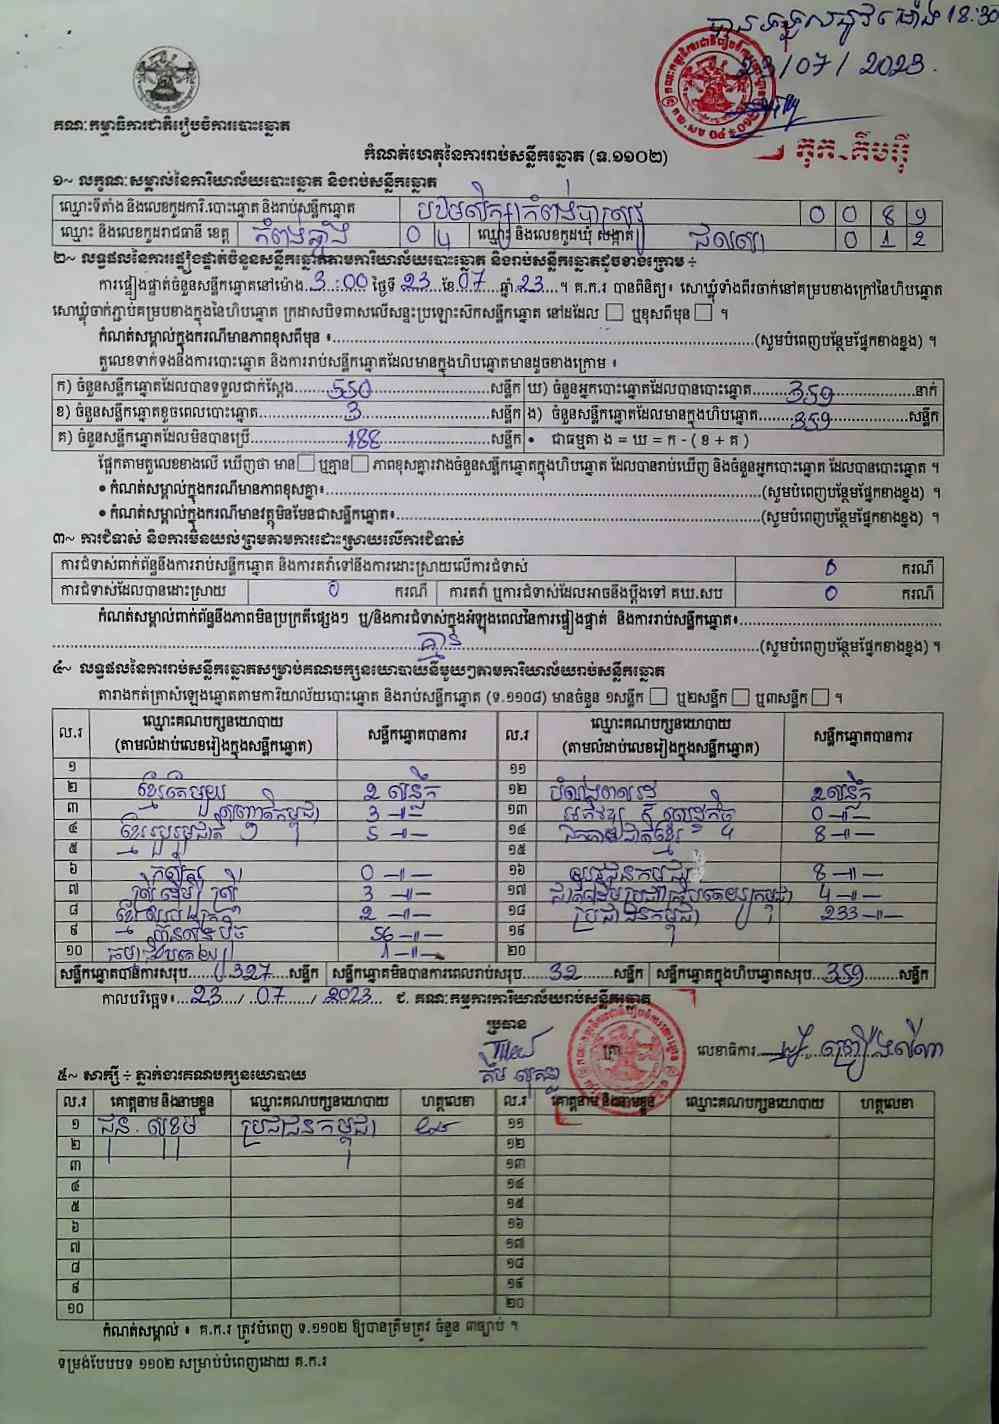 បានទទួលនៅវេលាម៉ោង 18:30
23/07/2023.
គណៈកម្មាធិការជាតិរៀបចំការបោះឆ្នោត
កំណត់ហេតុនៃការរាប់សន្លឹកឆ្នោត (ទ.១១០២)
១~ លក្ខណៈសម្គាល់នៃការិយាល័យបោះឆ្នោត និងរាប់សន្លឹកឆ្នោត
ឈ្មោះទីតាំង និងលេខកូដការិ.បោះឆ្នោត និងរាប់សន្លឹកឆ្នោត 0 0 8 9
ឈ្មោះ និងលេខកូដរាជធានី ខេត្ត កំពង់ឆ្នាំង 0 4 ឈ្មោះ និងលេខកូដឃុំ សង្កាត់ 0 1 2
២~ លទ្ធផលនៃការផ្ទៀងផ្ទាត់ចំនួនសន្លឹកឆ្នោតតាមការិយាល័យបោះឆ្នោត និងរាប់សន្លឹកឆ្នោតដូចខាងក្រោម ÷
ការផ្ទៀងផ្ទាត់ចំនួនសន្លឹកឆ្នោតនៅម៉ោង 3:00 ថ្ងៃទី 23 ខែ 07 ឆ្នាំ 23 ។ គ.ក.រ បានពិនិត្យ៖ សោឃ្លុំទាំងពីរចាក់នៅគម្របខាងក្រៅនៃហិបឆ្នោត
សោឃ្លុំចាក់ភ្ជាប់គម្របខាងក្នុងនៃហិបឆ្នោត ក្រដាសបិទពាសលើសន្ទះប្រឡោះស៊កសន្លឹកឆ្នោត នៅដដែល ឬខុសពីមុន ។
កំណត់សម្គាល់ក្នុងករណីមានភាពខុសពីមុន ៖ (សូមបំពេញបន្ថែមផ្នែកខាងខ្នង) ។
តួលេខទាក់ទងនឹងការបោះឆ្នោត និងការរាប់សន្លឹកឆ្នោតដែលមានក្នុងហិបឆ្នោតមានដូចខាងក្រោម ៖
ក) ចំនួនសន្លឹកឆ្នោតដែលបានទទួលជាក់ស្តែង 550 សន្លឹក ឃ) ចំនួនអ្នកបោះឆ្នោតដែលបានបោះឆ្នោត 359 នាក់
ខ) ចំនួនសន្លឹកឆ្នោតខូចពេលបោះឆ្នោត 3 សន្លឹក ង) ចំនួនសន្លឹកឆ្នោតដែលមានក្នុងហិបឆ្នោត 359 សន្លឹក
គ) ចំនួនសន្លឹកឆ្នោតដែលមិនបានប្រើ 188 សន្លឹក • ជាធម្មតា ង = ឃ = ក - ( ខ + គ )
ផ្អែកតាមតួលេខខាងលើ ឃើញថា មាន ឬគ្មាន ភាពខុសគ្នារវាងចំនួនសន្លឹកឆ្នោតក្នុងហិបឆ្នោត ដែលបានរាប់ឃើញ និងចំនួនអ្នកបោះឆ្នោត ដែលបានបោះឆ្នោត ។
• កំណត់សម្គាល់ក្នុងករណីមានភាពខុសគ្នា៖ (សូមបំពេញបន្ថែមផ្នែកខាងខ្នង) ។
• កំណត់សម្គាល់ក្នុងករណីមានវត្ថុមិនមែនជាសន្លឹកឆ្នោត៖ (សូមបំពេញបន្ថែមផ្នែកខាងខ្នង) ។
៣~ ការជំទាស់ និងការមិនយល់ព្រមតាមការដោះស្រាយលើការជំទាស់
ការជំទាស់ពាក់ព័ន្ធនឹងការរាប់សន្លឹកឆ្នោត និងការតវ៉ាទៅនឹងការដោះស្រាយលើការជំទាស់ 0 ករណី
ការជំទាស់ដែលបានដោះស្រាយ 0 ករណី ការតវ៉ា ឬការជំទាស់ដែលអាចនឹងប្តឹងទៅ គឃ.សប 0 ករណី
កំណត់សម្គាល់ពាក់ព័ន្ធនឹងភាពមិនប្រក្រតីផ្សេងៗ ឬ/និងការជំទាស់ក្នុងអំឡុងពេលនៃការផ្ទៀងផ្ទាត់ និងការរាប់សន្លឹកឆ្នោត៖
គ្មាន (សូមបំពេញបន្ថែមផ្នែកខាងខ្នង) ។
៤~ លទ្ធផលនៃការរាប់សន្លឹកឆ្នោតសម្រាប់គណបក្សនយោបាយនីមួយៗតាមការិយាល័យរាប់សន្លឹកឆ្នោត
តារាងកត់ត្រាសំឡេងឆ្នោតតាមការិយាល័យបោះឆ្នោត និងរាប់សន្លឹកឆ្នោត (ទ.១១០៨) មានចំនួន ១សន្លឹក ឬ២សន្លឹក ឬ៣សន្លឹក ។
ល.រ ឈ្មោះគណបក្សនយោបាយ សន្លឹកឆ្នោតបានការ ល.រ ឈ្មោះគណបក្សនយោបាយ សន្លឹកឆ្នោតបានការ
(តាមលំដាប់លេខរៀងក្នុងសន្លឹកឆ្នោត) (តាមលំដាប់លេខរៀងក្នុងសន្លឹកឆ្នោត)
១ ១១
២ ខ្មែរតែមួយ 2 សន្លឹក ១២ 2 សន្លឹក
៣ 3 -॥- ១៣ 0 -॥-
៤ 5 -॥- ១៤ 8 -॥-
៥ ១៥
៦ 0 -॥- ១៦ យុវជនកម្ពុជា 8 -॥-
៧ 3 -॥- ១៧ 4 -॥-
៨ 2 -॥- ១៨ ប្រជាជនកម្ពុជា 233 -॥-
៩ ហ៊្វុនស៊ិនប៉ិច 56 -॥- ១៩
១០ 1 -॥- ២០
សន្លឹកឆ្នោតបានការសរុប 327 សន្លឹក សន្លឹកឆ្នោតមិនបានការពេលរាប់សរុប 32 សន្លឹក សន្លឹកឆ្នោតក្នុងហិបឆ្នោតសរុប 359 សន្លឹក
កាលបរិច្ឆេទ៖ 23 / 07 / 2023 ជ. គណៈកម្មការការិយាល័យរាប់សន្លឹកឆ្នោត
ប្រធាន
ត្រា លេខាធិការ
៥~ សាក្សី ÷ ភ្នាក់ងារគណបក្សនយោបាយ
ល.រ គោត្តនាម និងនាមខ្លួន ឈ្មោះគណបក្សនយោបាយ ហត្ថលេខា ល.រ គោត្តនាម និងនាមខ្លួន ឈ្មោះគណបក្សនយោបាយ ហត្ថលេខា
១ ជុន សុខុម ប្រជាជនកម្ពុជា ១១
២ ១២
៣ ១៣
៤ ១៤
៥ ១៥
៦ ១៦
៧ ១៧
៨ ១៨
៩ ១៩
១០ ២០
កំណត់សម្គាល់ ៖ គ.ក.រ ត្រូវបំពេញ ទ.១១០២ ឱ្យបានត្រឹមត្រូវ ចំនួន ៣ច្បាប់ ។
ទម្រង់បែបបទ ១១០២ សម្រាប់បំពេញដោយ គ.ក.រ